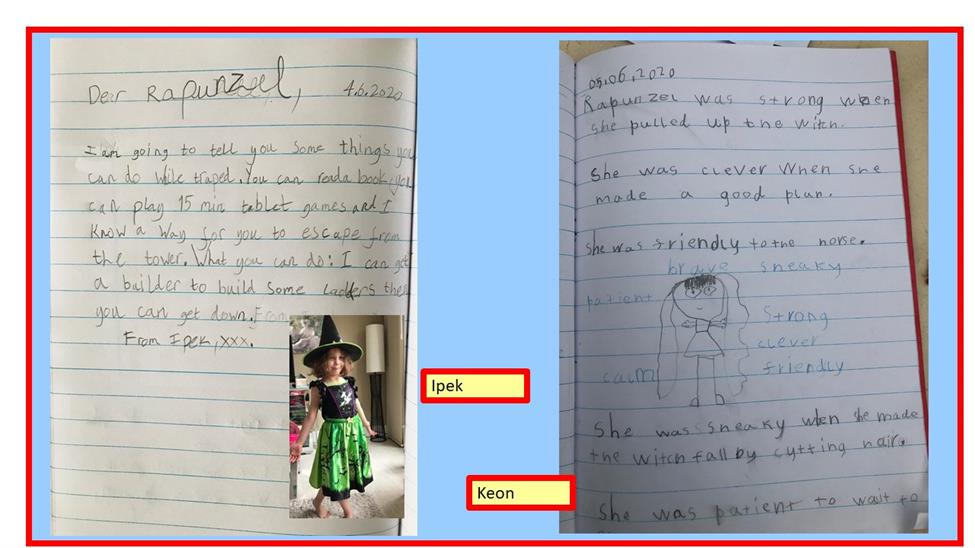 Dear Rapunzel, 4.6.2020
I am going to tell you some things you
can do while traped. You can read a book, you
can play 15 min tablet games and I
know a way for you to escape from
the tower. What you can do: I can get
a builder to build some ladders then
you can get down. From
From Ipek, xxx.
Ipek
Keon
05.06.2020
Rapunzel was strong when
she pulled up the witch.
She was clever When she
made a good plan.
She was friendly to the horse.
brave sneaky
patient
strong
clever
calm
friendly
She was sneaky when she made
the witch fall by cutting hair.
She was patient to wait to